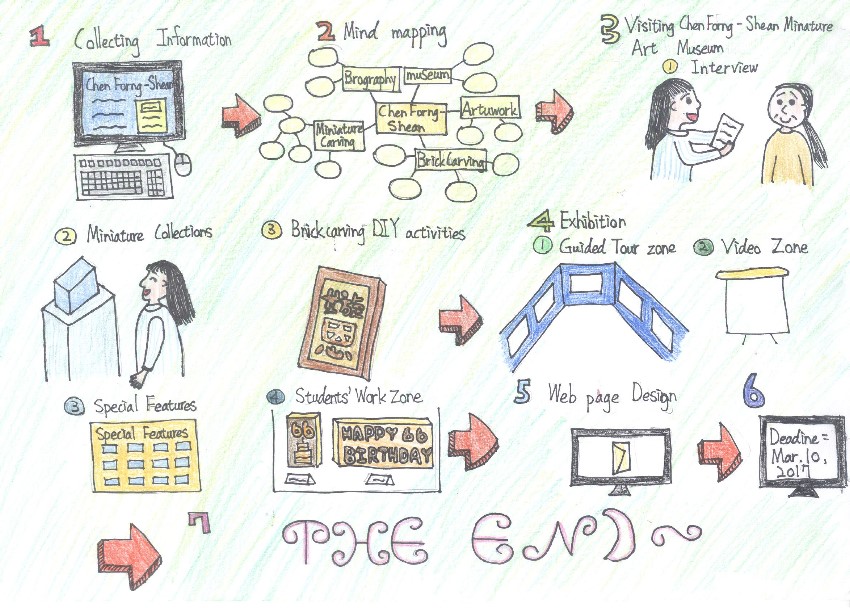 1 Collecting Information
Chen Forng-Shean
2 Mind mapping
Brography
museum
Chen Forng-
Shean
Artuwork
Miniature
Carving
Brick Carving
3 Visiting Chen Forng-Shean Minature
Art Museum
1 Interview
2 Miniature Collections
3 Brickcarving DIY activities
4 Exhibition
1 Guided Tour zone
2 Video Zone
3 Special Features
Special Features
4 Students' Work Zone
66
HAPPY 66
BIRTHDAY
5 Web page Design
6
Deadine=
Mar. 10,
2017
7 THE END~